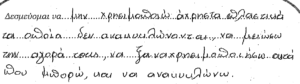 Δεσμεύομαι να...μην...χρησιμοποιώ άχρηστα πλαστικά
τα οποία...δεν ανακυκλώνονται, να μειώσω
την αγορά τους, να ξαναχρησιμοποιήσω αυτά
που μπορώ, και να ανακυκλώνω.